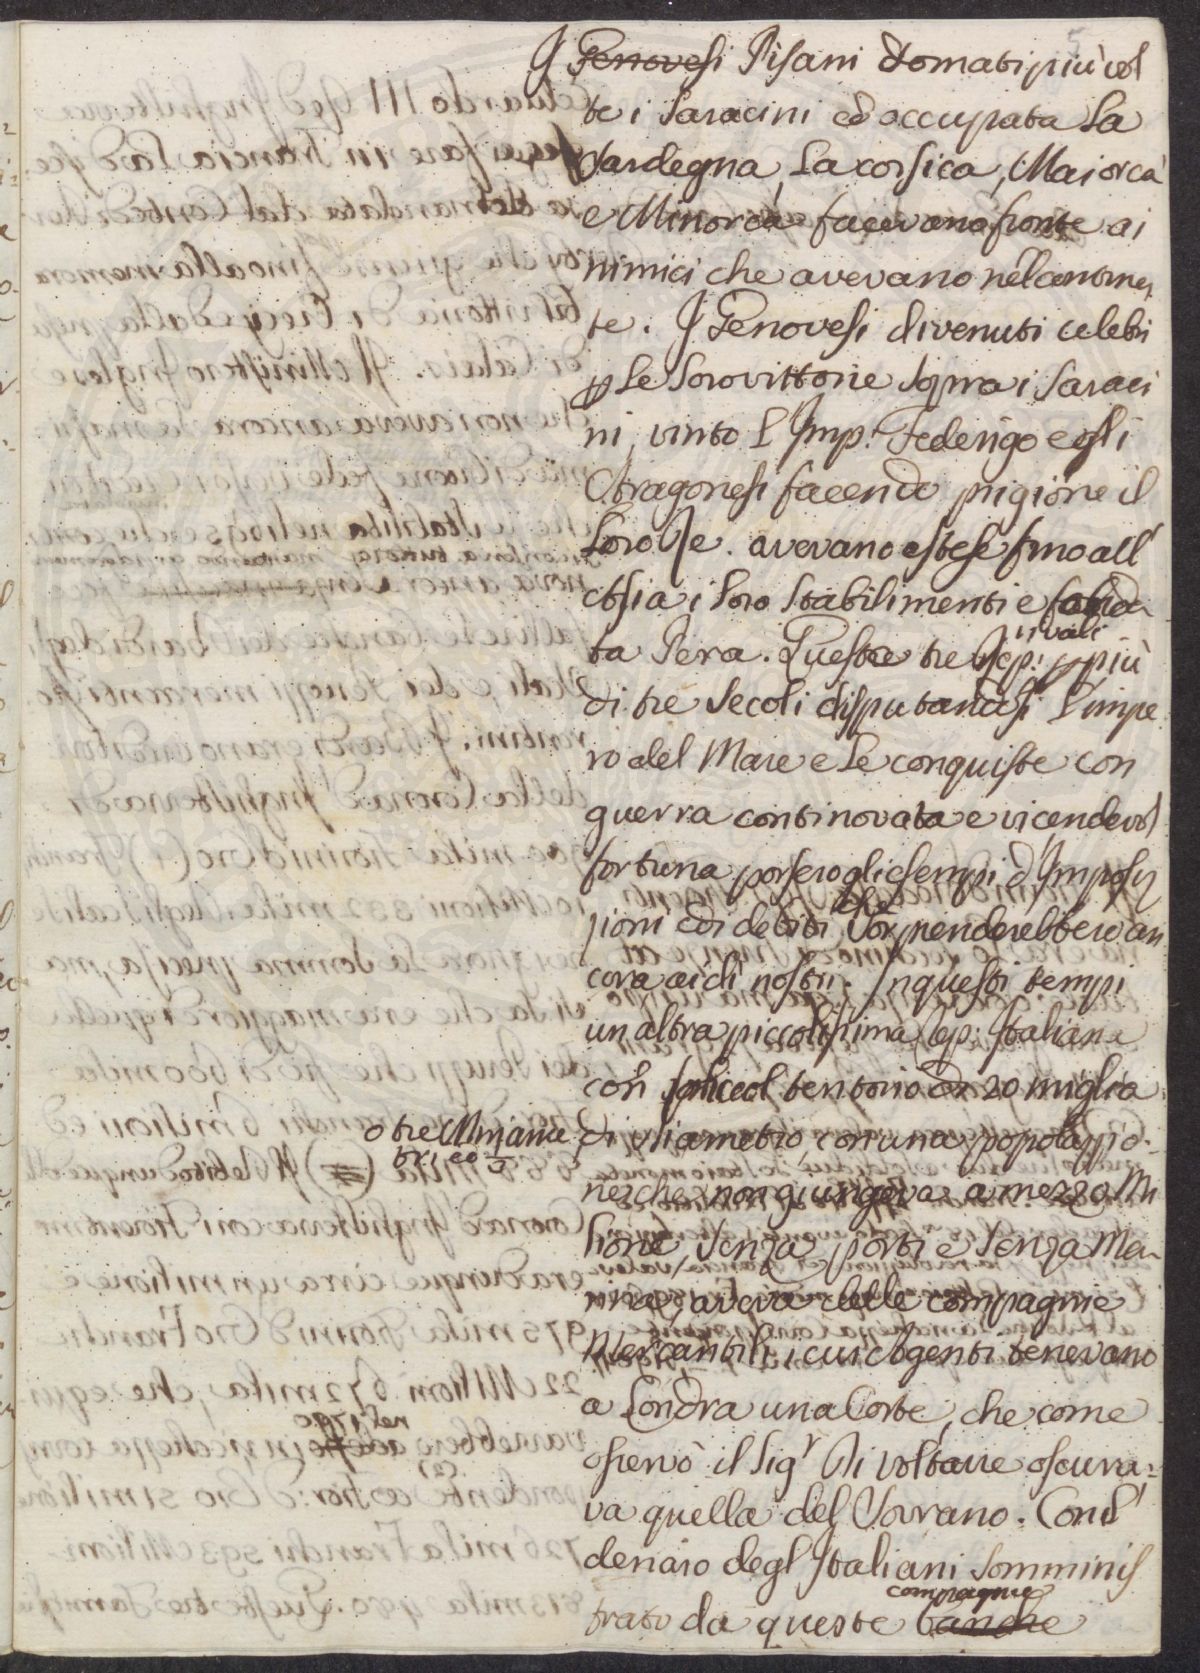 5
I Genovesi Pisani domati più vol
te i Saracini ed occupata la
Sardegna, la Corsica, Maiorca
e Minorca facevano fronte ai
nimici che avevano nel continen
te. I Genovesi divenuti celebri
p le loro vittorie sopra i Saraci
ni, vinto l'Imp: Federigo e gli
Aragonesi facendo prigione il
loro Re. avevano estese fino all'
Asia i loro stabilimenti e fonda
ta Pera. Queste tre Rep: rivali p più
di tre Secoli disputandosi l'impe
ro del Mare e le conquiste con
guerra continovata e vicendevol
fortuna porsero gli esempi d'Imposi
zioni e di debiti che sorprenderebbero an
cora ai dì nostri. In questi tempi
un altra piccolissima Rep: Italiana
con territorio di 20 miglia
di diametro, con una popolazio-
ne che non giungeva a mezzo Mi
lione, senza porti e senza Ma-
rina, aveva delle compagnie
Mercantili, i cui Agenti tenevano
a Londra una Corte, che come
osservò il Sigr di Voltaire oscura=
va quella del Sovrano. Con il
denaro degl'Italiani somminis
trato da queste compagnie banche